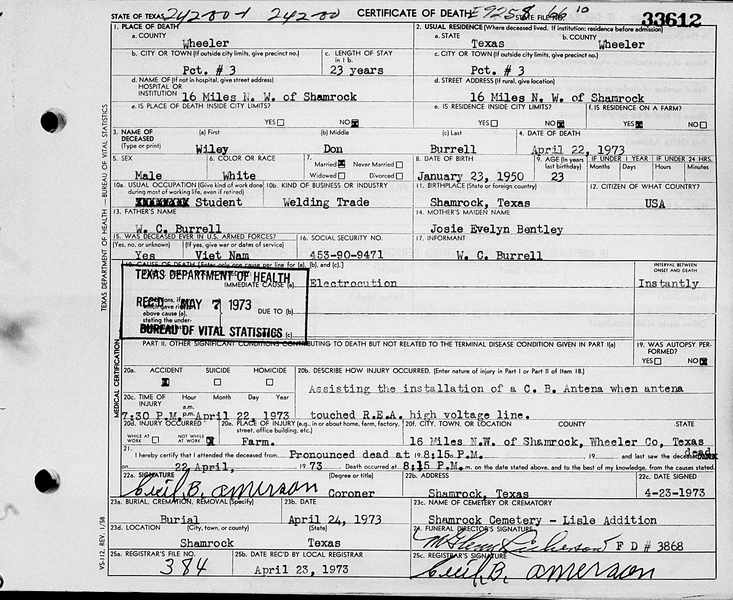 STATE OF TEXAS 242-00-1 242-00 CERTIFICATE OF DEATH STATE FILE NO. 33612
1. PLACE OF DEATH 2. USUAL RESIDENCE (Where deceased lived. If institution: residence before admission)
a. COUNTY a. STATE b. COUNTY
Wheeler Texas Wheeler
b. CITY OR TOWN (If outside city limits, give precinct no.) c. LENGTH OF STAY in 1 b. c. CITY OR TOWN (If outside city limits, give precinct no.)
Pct. # 3 23 years Pct. # 3
d. NAME OF (If not in hospital, give street address) HOSPITAL OR INSTITUTION d. STREET ADDRESS (If rural, give location)
16 Miles N. W. of Shamrock 16 Miles N. W. of Shamrock
e. IS PLACE OF DEATH INSIDE CITY LIMITS? e. IS RESIDENCE INSIDE CITY LIMITS? f. IS RESIDENCE ON A FARM?
YES NO YES NO YES NO
3. NAME OF DECEASED (Type or print) (a) First (b) Middle (c) Last 4. DATE OF DEATH
Wiley Don Burrell April 22, 1973
5. SEX 6. COLOR OR RACE 7. Married Never Married Widowed Divorced 8. DATE OF BIRTH 9. AGE (In years last birthday) IF UNDER 1 YEAR Months Days IF UNDER 24 HRS. Hours Minutes
Male White January 23, 1950 23
10a. USUAL OCCUPATION (Give kind of work done during most of working life, even if retired) 10b. KIND OF BUSINESS OR INDUSTRY 11. BIRTHPLACE (State or foreign country) 12. CITIZEN OF WHAT COUNTRY?
Student Welding Trade Shamrock, Texas USA
13. FATHER'S NAME 14. MOTHER'S MAIDEN NAME
W. C. Burrell Josie Evelyn Bentley
15. WAS DECEASED EVER IN U.S. ARMED FORCES? (Yes, no, or unknown) (If yes, give war or dates of service) 16. SOCIAL SECURITY NO. 17. INFORMANT
Yes Viet Nam 453-90-9471 W. C. Burrell
18. CAUSE OF DEATH (Enter only one cause per line for (a), (b), and (c).) INTERVAL BETWEEN ONSET AND DEATH
TEXAS DEPARTMENT OF HEALTH
IMMEDIATE CAUSE (a) Electrocution Instantly
REC'D MAY 7 1973 DUE TO (b)
above cause (a), stating the under-
BUREAU OF VITAL STATISTICS (c)
PART II. OTHER SIGNIFICANT CONDITIONS CONTRIBUTING TO DEATH BUT NOT RELATED TO THE TERMINAL DISEASE CONDITION GIVEN IN PART I(a) 19. WAS AUTOPSY PERFORMED?
YES NO
20a. ACCIDENT SUICIDE HOMICIDE 20b. DESCRIBE HOW INJURY OCCURRED. (Enter nature of injury in Part I or Part II of Item 18.)
Assisting the installation of a C. B. Antena when antena
20c. TIME OF INJURY Hour Month Day Year a.m. p.m.
7:30 P.M. April 22, 1973 touched R.E.A. high voltage line.
20d. INJURY OCCURRED WHILE AT WORK NOT WHILE AT WORK 20e. PLACE OF INJURY (e.g., in or about home, farm, factory, street, office building, etc.) 20f. CITY, TOWN, OR LOCATION COUNTY STATE
Farm. 16 Miles N.W. of Shamrock, Wheeler Co, Texas
21. I hereby certify that I attended the deceased from Pronounced dead at 8:15 P.M. 19 and last saw the deceased dead
on 22 April, 1973 Death occurred at 8:15 P.M. m. on the date stated above, and to the best of my knowledge, from the causes stated.
22a. SIGNATURE (Degree or title) 22b. ADDRESS 22c. DATE SIGNED
Cecil B. Amerson Coroner Shamrock, Texas 4-23-1973
23a. BURIAL, CREMATION, REMOVAL (Specify) 23b. DATE 23c. NAME OF CEMETERY OR CREMATORY
Burial April 24, 1973 Shamrock Cemetery - Lisle Addition
23d. LOCATION (City, town, or county) (State) 24. FUNERAL DIRECTOR'S SIGNATURE
Shamrock Texas F D # 3868
25a. REGISTRAR'S FILE NO. 25b. DATE REC'D BY LOCAL REGISTRAR 25c. REGISTRAR'S SIGNATURE
384 April 23, 1973 Cecil B. Amerson
TEXAS DEPARTMENT OF HEALTH — BUREAU OF VITAL STATISTICS
MEDICAL CERTIFICATION
VS-112, REV. 1/58